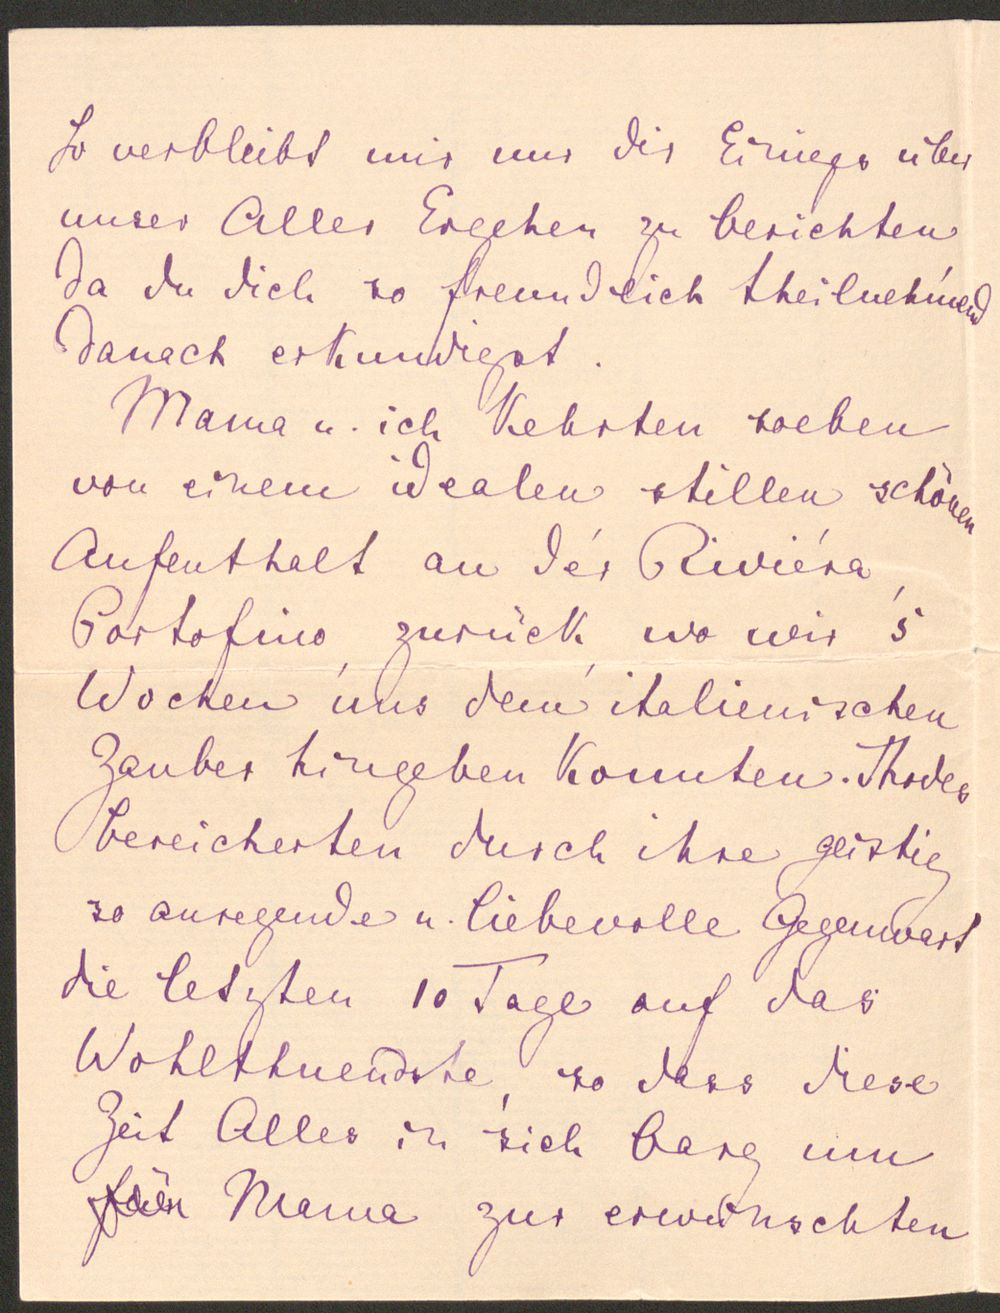 So verbleibt mir nur dir Einiges über
unser Aller Ergehen zu berichten
da du dich so freundlich theilnehmend
danach erkundigst.
Mama u. ich kehrten soeben
von einem idealen stillen schönen
Aufenthalt an der Riviéra,
Portofino, zurück, wo wir 5
Wochen uns dem italienischen
Zauber hingeben konnten. Thodes
bereicherten durch ihre geistig
so anregende u. liebevolle Gegenwart
die letzten 10 Tage auf das
Wohlthuendste, so dass diese
Zeit Alles in sich barg um
für Mama zur erwünschten